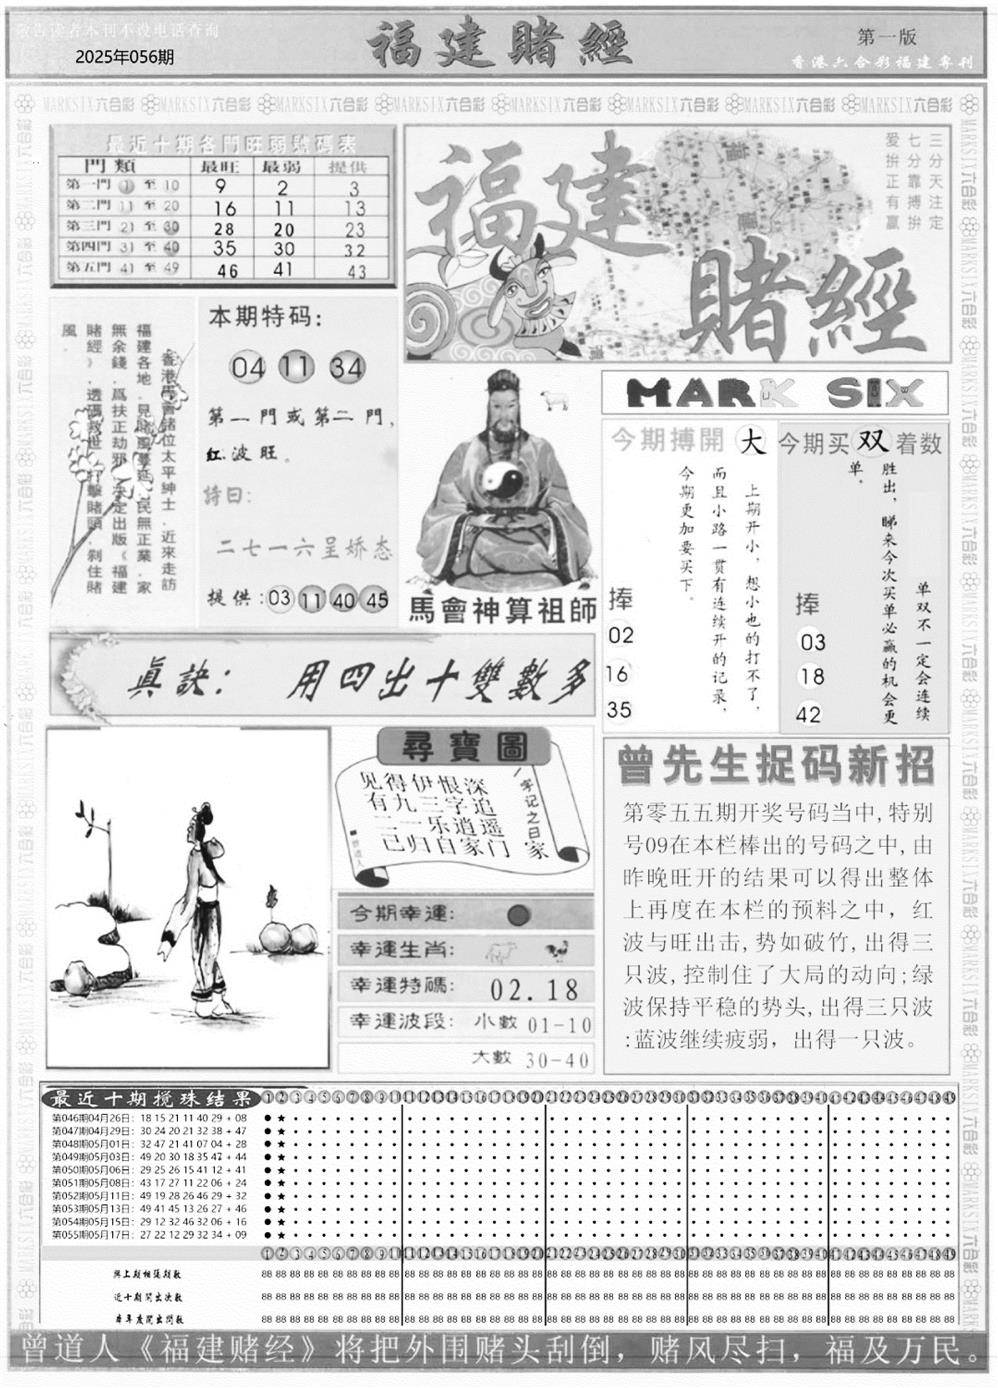 敬告读者本刊不设电话查询
2025年056期
福建賭經
第一版
香港六合彩福建專刊
MARKSIX六合彩 MARKSIX六合彩 MARKSIX六合彩 MARKSIX六合彩 MARKSIX六合彩 MARKSIX六合彩 MARKSIX六合彩 MARKSIX六合彩
最近十期各門旺弱號碼表
門類 最旺 最弱 提供
第一門 1 至 10 9 2 3
第二門 11 至 20 16 11 13
第三門 21 至 30 28 20 23
第四門 31 至 40 35 30 32
第五門 41 至 49 46 41 43
福建
賭經
三分天注定
七分靠搏拚
愛拚正有贏
香港馬會諸位太平紳士.近來走訪
福建各地.見賭風蔓延.民無正業.家
無余錢.爲扶正劫邪.決定出版《福建
賭經》.透碼救世.打擊賭頭.刹住賭
風.
本期特码:
04 11 34
第一門或第二門,
红波旺。
詩曰:
二七一六呈娇态
提供:03 11 40 45
馬會神算祖師
MARK SIX
今期搏開 大
上期开小，想小也的打不了，
而且小路一贯有连续开的记录，
今期更加要买下。
捧
02
16
35
今期买 双 着数
单双不一定会连续
胜出，睇来今次买单必赢的机会更
单，
捧
03
18
42
真訣: 用四出十雙數多
尋寶圖
一字记之曰 家
见得伊恨深
有九三字追
二一乐逍遥
己归自家门
■曾道人
今期幸運:
幸運生肖:
幸運特碼: 02.18
幸運波段: 小數 01-10
大數 30-40
曾先生捉码新招
第零五五期开奖号码当中,特别
号09在本栏棒出的号码之中,由
昨晚旺开的结果可以得出整体
上再度在本栏的预料之中，红
波与旺出击,势如破竹,出得三
只波,控制住了大局的动向;绿
波保持平稳的势头,出得三只波
:蓝波继续疲弱，出得一只波。
最近十期搅珠结果
第046期04月26日: 18 15 21 11 40 29 + 08
第047期04月29日: 30 24 20 21 32 38 + 47
第048期05月01日: 32 47 21 41 07 04 + 28
第049期05月03日: 49 20 30 18 35 47 + 44
第050期05月06日: 29 25 26 15 41 12 + 41
第051期05月08日: 43 17 27 11 22 06 + 24
第052期05月11日: 49 19 28 26 46 29 + 32
第053期05月13日: 49 41 45 13 26 27 + 46
第054期05月15日: 29 12 32 46 32 06 + 16
第055期05月17日: 27 22 12 29 32 34 + 09
與上期相隔期數
近十期開出次數
本年度開出期數
曾道人《福建赌经》将把外围赌头刮倒，赌风尽扫，福及万民。